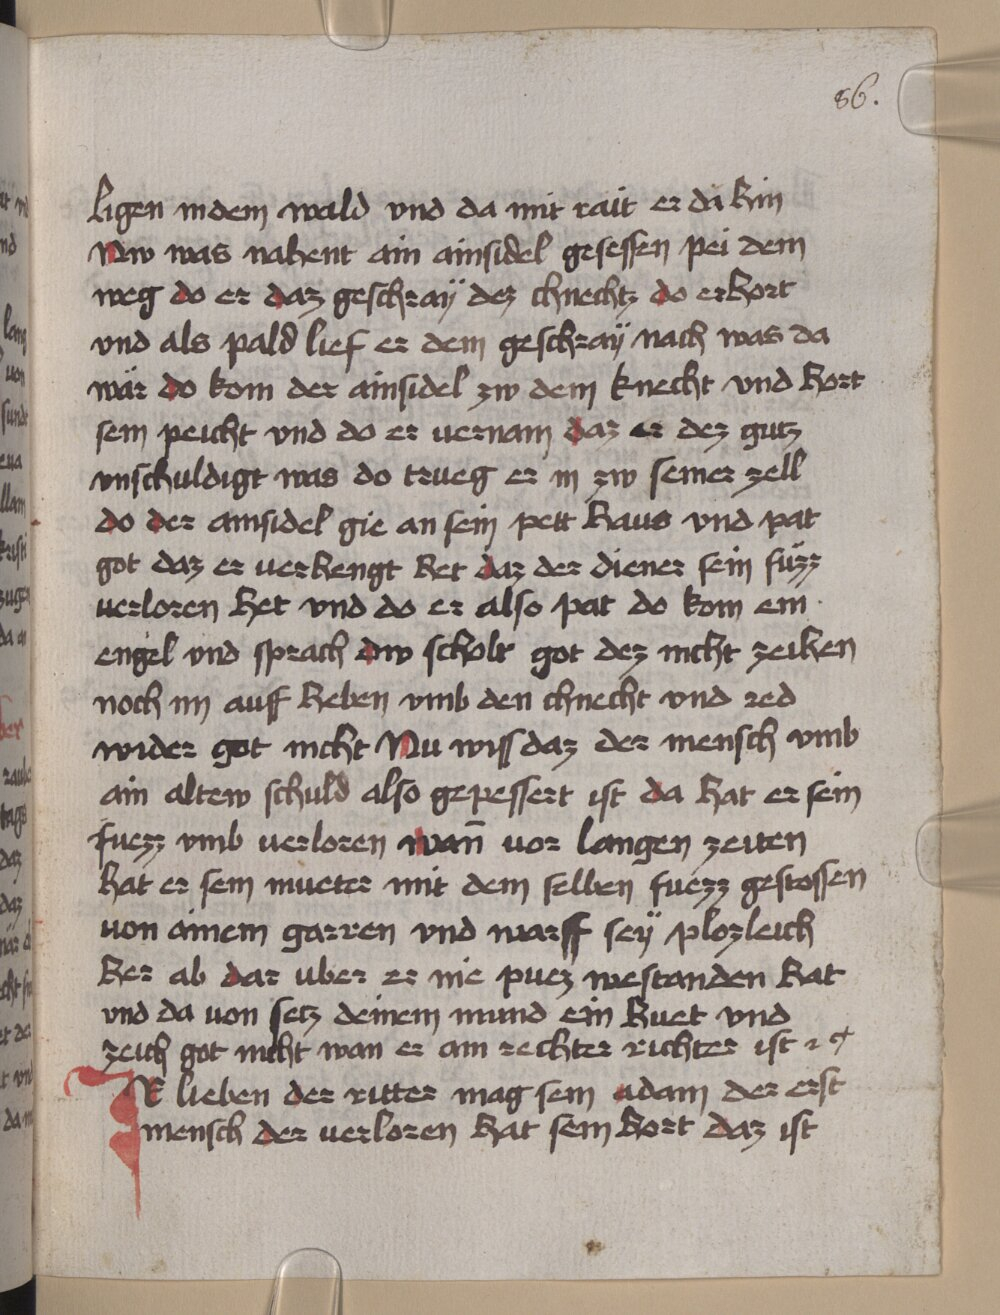 86.
ligen in dem wald vnd da mit rait er da hin
Nw was nahent ain ainsidel gesessen pei dem
weg do er daz geschraÿ dez chnechtz do erhort
vnd als pald lief er dem geschraÿ nach was da
wär do kom der ainsidel zw dem knecht vnd hort
sein peicht vnd do er vernam daz er dez gutz
vnschuldigt was do trueg er in zw seiner zell
do der ainsidel gie an sein pett haus vnd pat
got daz er verhengt het daz der diener sein fuzz
verloren het vnd do er also pat do kom ein
engel vnd sprach dw scholt got dez nicht zeihen
noch im auff heben vmb den chnecht vnd red
wider got nicht Nu wiss daz der mensch vmb
ain altew schuld also gepessert ist da hat er sein
fuezz vmb verloren wañ vor langen zeiten
hat er sein mueter mit dem selben fuezz gestossen
von ainem garren vnd warff seÿ plozleich
her ab dar vber er nie puez westanden hat
vnd da von setz deinem mund ein huet vnd
zeich got nicht wan er ain rechter richter ist
IR lieben der ritter mag sein adam der erst
mensch der verloren hat sein hort daz ist